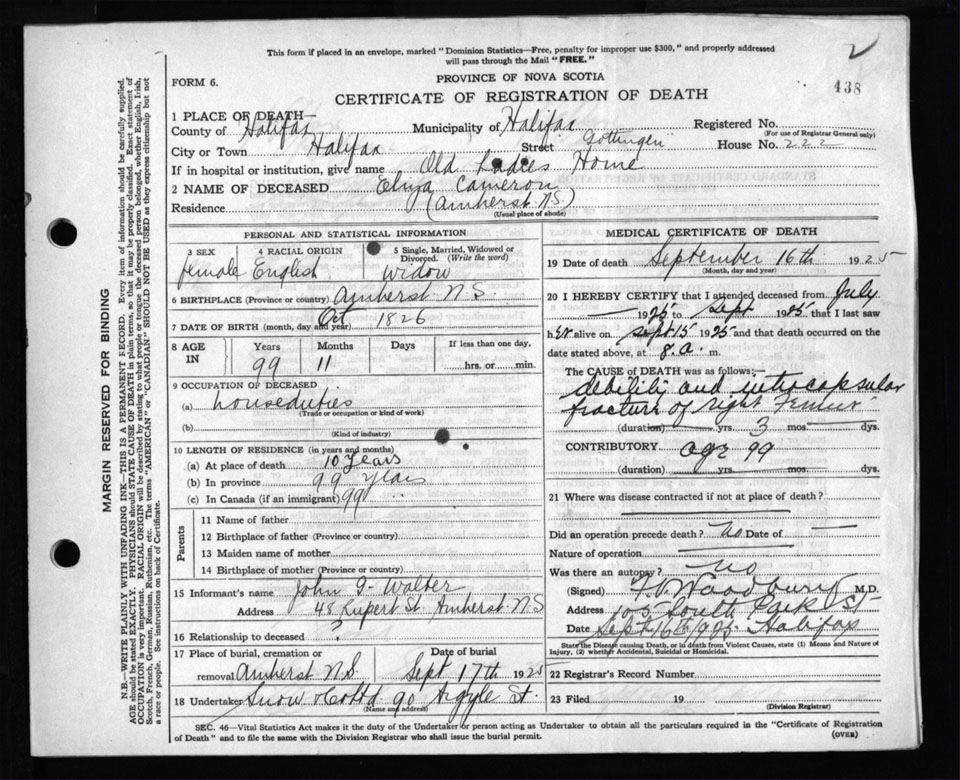 This form if placed in an envelope, marked "Dominion Statistics—Free, penalty for improper use $300," and properly addressed
will pass through the Mail "FREE."
2
FORM 6.
PROVINCE OF NOVA SCOTIA
438
CERTIFICATE OF REGISTRATION OF DEATH
1 PLACE OF DEATH—
County of Halifax Municipality of Halifax Registered No.
(For use of Registrar General only)
City or Town Halifax Street Gottingen House No. 222
If in hospital or institution, give name Old Ladies Home
2 NAME OF DECEASED Eliza Cameron
Residence (Amherst N.S.)
(Usual place of abode)
PERSONAL AND STATISTICAL INFORMATION
3 SEX 4 RACIAL ORIGIN 5 Single, Married, Widowed or
Divorced. (Write the word)
female English widow
6 BIRTHPLACE (Province or country) Amherst N.S.
7 DATE OF BIRTH (month, day and year) Oct 1826
8 AGE IN Years Months Days If less than one day,
99 11 hrs. or min.
9 OCCUPATION OF DECEASED
(a) houseduties
(Trade or occupation or kind of work)
(b)
(Kind of industry)
10 LENGTH OF RESIDENCE (in years and months)
(a) At place of death 10 years
(b) In province 99 years
(c) In Canada (if an immigrant) 99
Parents
11 Name of father
12 Birthplace of father (Province or country)
13 Maiden name of mother
14 Birthplace of mother (Province or country)
15 Informant's name John G Walter
Address 48 Rupert St. Amherst N.S
16 Relationship to deceased ?
17 Place of burial, cremation or Date of burial
removal Amherst N.S. Sept 17th 1925
18 Undertaker Snow & Co Ltd 90 Argyle St.
(Name and address)
MEDICAL CERTIFICATE OF DEATH
19 Date of death September 16th 1925
(Month, day and year)
20 I HEREBY CERTIFY that I attended deceased from July
— 1925 to Sept 1925 that I last saw
h er alive on Sept 15 1925 and that death occurred on
date stated above, at 8.a. m.
The CAUSE OF DEATH was as follows:
debility and intracapsular
fracture of right Femur
(duration) yrs. 3 mos. dys.
CONTRIBUTORY age 99
(duration) yrs. mos. dys.
21 Where was disease contracted if not at place of death?
Did an operation precede death? No Date of
Nature of operation
Was there an autopsy? No
(Signed) F.V. Woodbury M.D.
Address 105 South Park St
Date Sept 16th 1925 Halifax
State the Disease causing Death, or in death from Violent Causes, state (1) Means and Nature of
Injury, (2) whether Accidental, Suicidal or Homicidal.
22 Registrar's Record Number
23 Filed 19
(Division Registrar)
SEC. 46—Vital Statistics Act makes it the duty of the Undertaker or person acting as Undertaker to obtain all the particulars required in the "Certificate of Registration
of Death" and to file the same with the Division Registrar who shall issue the burial permit.
(OVER)
MARGIN RESERVED FOR BINDING
N.B.—WRITE PLAINLY WITH UNFADING INK—THIS IS A PERMANENT RECORD. Every item of information should be carefully supplied.
AGE should be stated EXACTLY. PHYSICIANS should STATE CAUSE OF DEATH in plain terms, so that it may be properly classified. Exact statement of
OCCUPATION is very important. RACIAL ORIGIN will be described by stating to what people or tongue the deceased person belonged, whether English, Irish,
Scotch, French, German, Russian, Ruthenian, etc. The terms "AMERICAN" or "CANADIAN" SHOULD NOT BE USED as they express citizenship but not
a race or people. See instructions on back of Certificate.